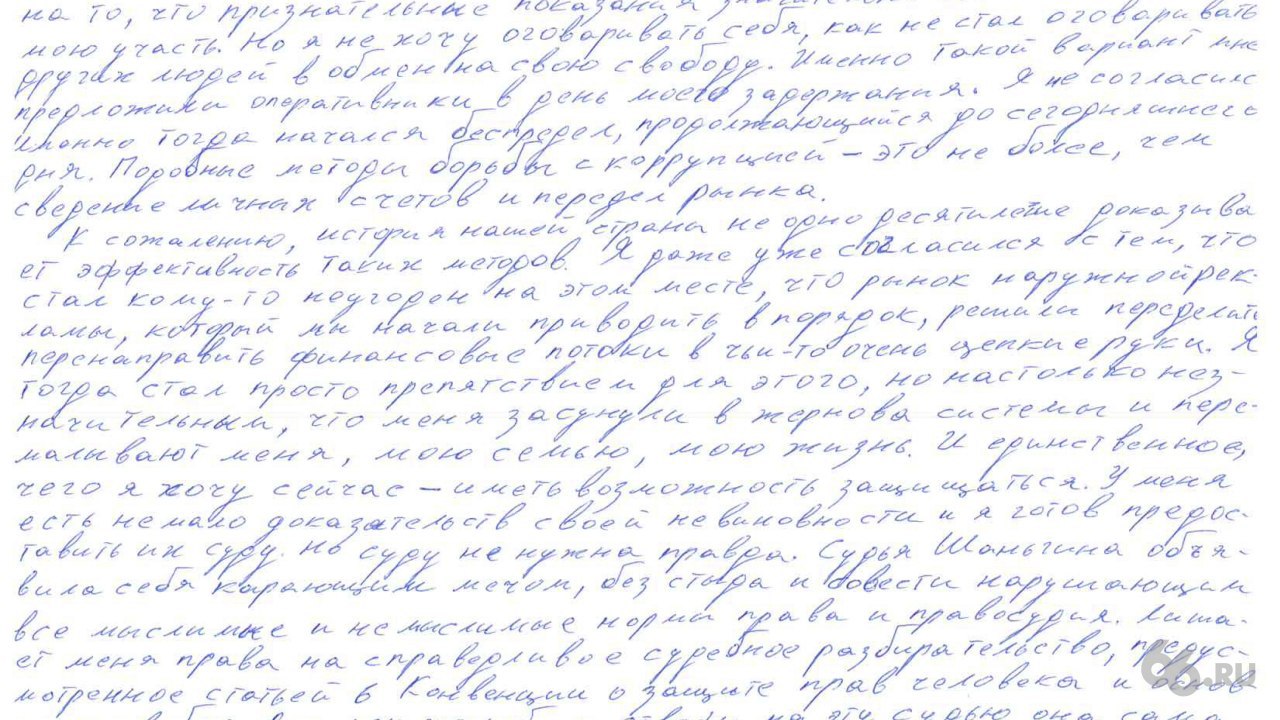 на то, что признательные показания
мою участь. Но я не хочу оговаривать себя, как не стал оговаривать
других людей в обмен на свою свободу. Именно такой вариант мне
предложили оперативники в день моего задержания. Я не согласился
именно тогда начался беспредел, продолжающийся до сегодняшнего
дня. Подобные методы борьбы с коррупцией – это не более, чем
сведение личных счетов и передел рынка.
К сожалению, история нашей страны не одно десятилетие доказыва
ет эффективность таких методов. Я даже уже согласился с тем, что
стал кому-то неугоден на этом месте, что рынок наружной рек-
ламы, который мы начали приводить в порядок, решили переделить
перенаправить финансовые потоки в чьи-то очень цепкие руки. Я
тогда стал просто препятствием для этого, но настолько нез-
начительным, что меня засунули в жернова системы и пере-
малывают меня, мою семью, мою жизнь. И единственное,
чего я хочу сейчас – иметь возможность защищаться. У меня
есть немало доказательств своей невиновности и я готов предос-
тавить их суду. Но суду не нужна правда. Судья Шаньгина объя-
вила себя карающим мечом, без стыда и совести нарушающим
все мыслимые и немыслимые нормы права и правосудия. Лиша-
ет меня права на справедливое судебное разбирательство, предус-
мотренное статьей 6 Конвенции о защите прав человека и основ
на эту судью она сама
66.RU